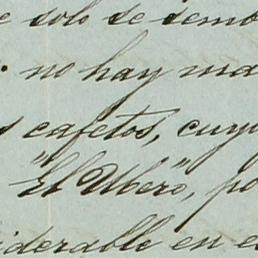 e solo se semb
. no hay ma
s cafetos, cuyo
"El Ubero", po
siderable en e